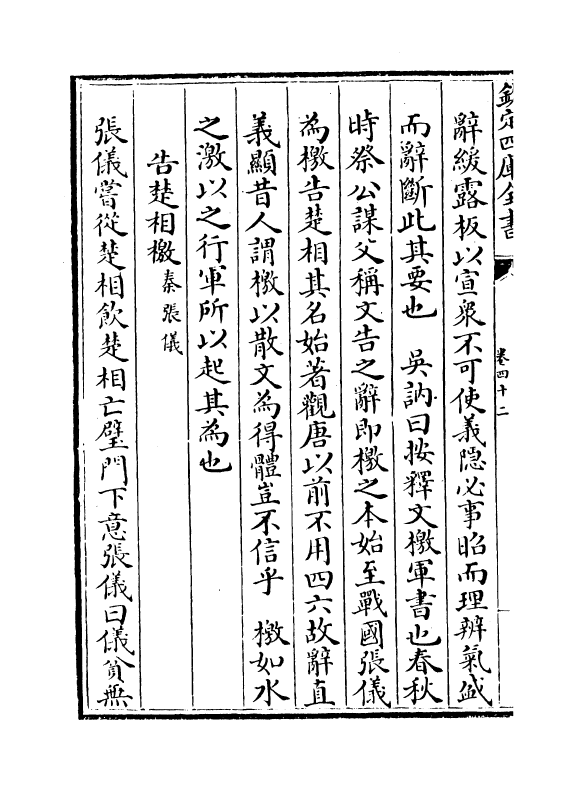 欽定四庫全書
卷四十二
辭緩露板以宣衆不可使義隠必事昭而理辨氣盛
而辭斷此其要也　吳訥曰按釋文檄軍書也春秋
時祭公謀父稱文告之辭即檄之本始至戰國張儀
為檄告楚相其名始著觀唐以前不用四六故辭直
義顯昔人謂檄以散文為得體豈不信乎　檄如水
之激以之行軍所以起其為也
告楚相檄秦張儀
張儀嘗從楚相飲楚相亡璧門下意張儀曰儀貧無